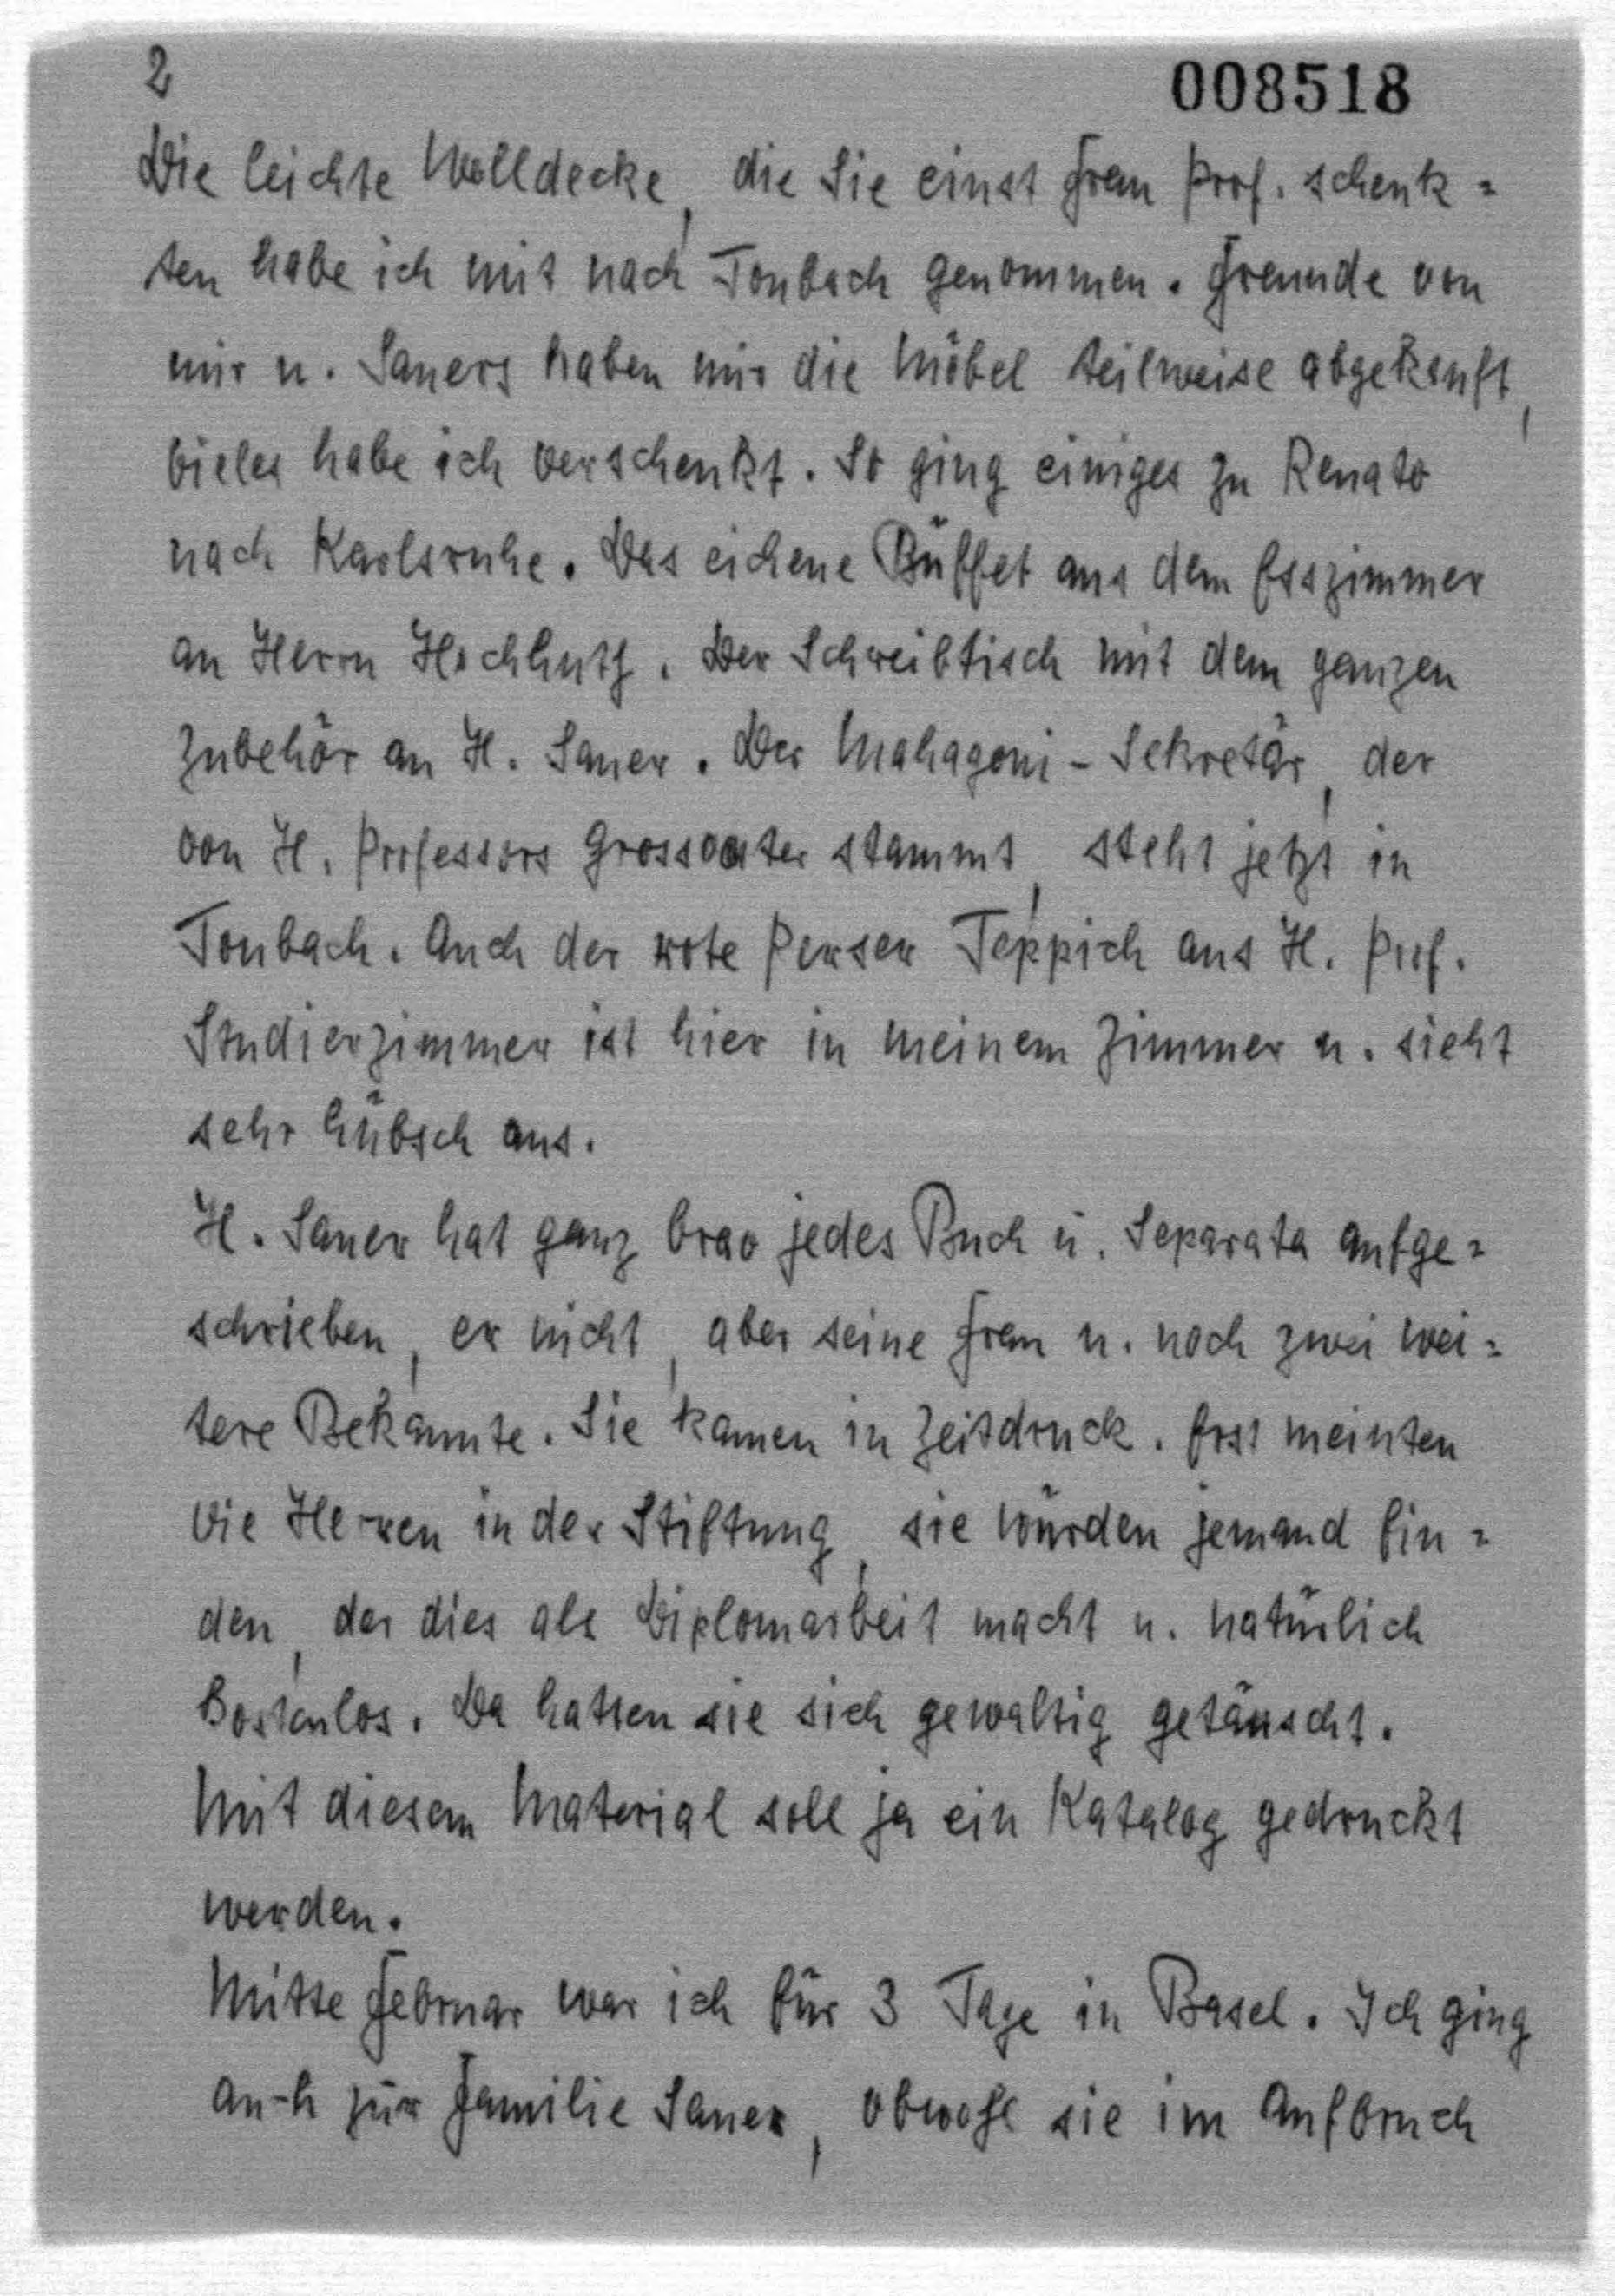 2
008518
Die leichte Wolldecke, die Sie einst Frau Prof. schenk=
ten habe ich mit nach Tonbach genommen. Freunde von
mir u. Saners haben mir die Möbel teilweise abgekauft,
vieles habe ich verschenkt. So ging einiges zu Renato
nach Karlsruhe. Das eichene Büffet aus dem Esszimmer
an Herrn Hochhuth. Der Schreibtisch mit dem ganzen
Zubehör an H. Saner. Der Mahagoni-Sekretär, der
von H. Professors Grossvater stammt, steht jetzt in
Tonbach. Auch der rote Perser Teppich aus H. Prof.
Studierzimmer ist hier in meinem Zimmer u. sieht
sehr hübsch aus.
H. Saner hat ganz brav jedes Buch u. Separata aufge=
schrieben, er nicht, aber seine Frau u. noch zwei wei=
tere Bekannte. Sie kamen in Zeitdruck. Erst meinten
die Herren in der Stiftung, sie würden jemand fin=
den, der dies als Diplomarbeit macht u. natürlich
kostenlos. Da hatten sie sich gewaltig getäuscht.
Mit diesem Material soll ja ein Katalog gedruckt
werden.
Mitte Februar war ich für 3 Tage in Basel. Ich ging
auch zur Familie Saner, obwohl sie im Aufbruch